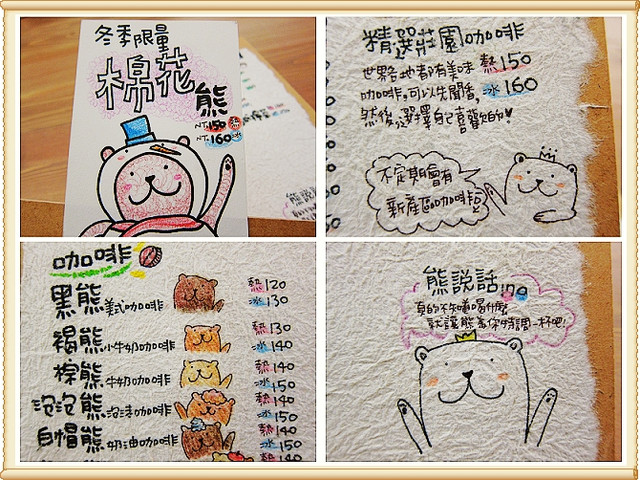 冬季限量
棉花
熊
NT.150 熱
NT.160 冰
精選莊園咖啡
世界各地都有美味 熱150
咖啡,可以先聞香, 冰160
然後選擇自己喜歡的!
不定期會有
新產區咖啡
咖啡
黑熊 美式咖啡 熱120
冰130
褐熊 小牛奶咖啡 熱130
冰140
棕熊 牛奶咖啡 熱140
冰150
泡泡熊 泡沫咖啡 熱140
冰150
白帽熊 奶油咖啡 熱140
冰150
熱140
熊說話ing
真的不知道喝什麼
就讓熊為你特調一杯吧!